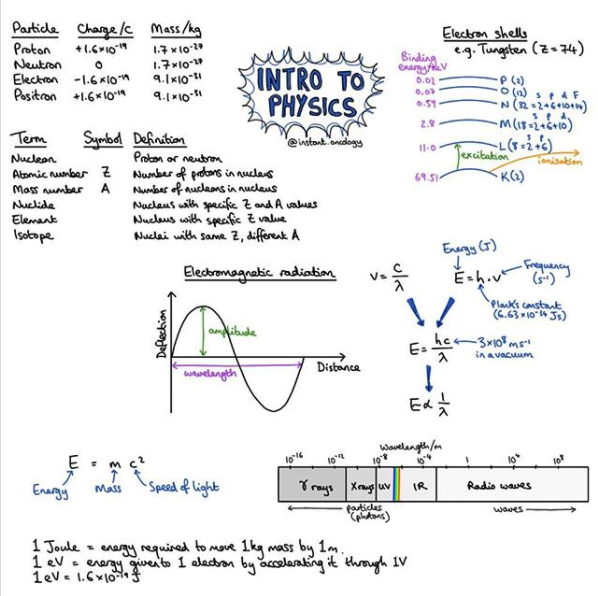 Particle Charge/C Mass/kg
Proton +1.6×10⁻¹⁹ 1.7×10⁻²⁷
Neutron 0 1.7×10⁻²⁷
Electron -1.6×10⁻¹⁹ 9.1×10⁻³¹
Positron +1.6×10⁻¹⁹ 9.1×10⁻³¹
INTRO TO
PHYSICS
@instant.oncology
Electron shells
e.g. Tungsten (Z=74)
Binding
energy/keV
0.02 P (2)
0.07 O (12) s p d F
0.59 N (32=2+6+10+14)
s p d
2.8 M (18=2+6+10)
s p
11.0 L (8=2+6)
excitation
ionisation
69.51 K (2)
Term Symbol Definition
Nucleon Proton or neutron
Atomic number Z Number of protons in nucleus
Mass number A Number of nucleons in nucleus
Nuclide Nucleus with specific Z and A values
Element Nucleus with specific Z value
Isotope Nuclei with same Z, different A
Electromagnetic radiation
Deflection
amplitude
wavelength
Distance
Energy (J)
v = c/λ E = h.v
Frequency
(s⁻¹)
Plank's constant
(6.63×10⁻³⁴ Js)
E = hc/λ
3×10⁸ ms⁻¹
in a vacuum
E ∝ 1/λ
E = m c²
Energy Mass Speed of light
Wavelength/m
10⁻¹⁶ 10⁻¹² 10⁻⁸ 10⁻⁴ 1 10⁴ 10⁸
γ rays X rays UV IR Radio waves
particles
(photons)
waves
1 Joule = energy required to move 1kg mass by 1m.
1 eV = energy given to 1 electron by accelerating it through 1V
1 eV = 1.6×10⁻¹⁹ J